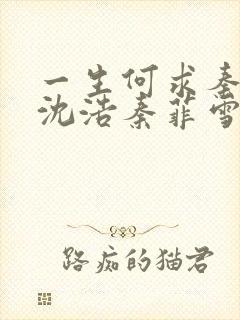 一生何求秦
沈浩秦菲雪
路痴的猫君